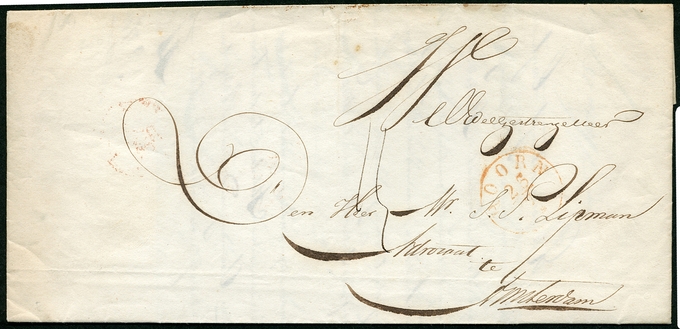 WelEdelgestrenge Heer
Den Heer Mr. S. S. Lipman
Advocaat
te
Amsterdam
HOORN